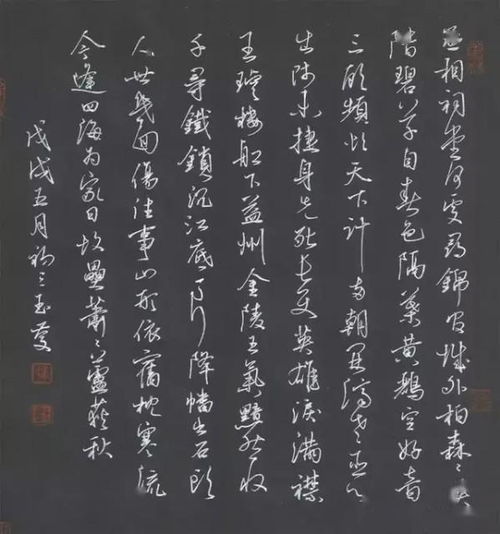 丞相祠堂何處尋錦官城外柏森々映
階碧草自春色隔葉黃鸝空好音
三顧頻煩天下計兩朝開濟老臣心
出師未捷身先死長使英雄淚滿襟
王濬樓船下益州金陵王氣黯然收
千尋鐵鎖沉江底一片降幡出石頭
人世幾回傷往事山形依舊枕寒流
今逢四海為家日故壘蕭々蘆荻秋
戊戌五月初三